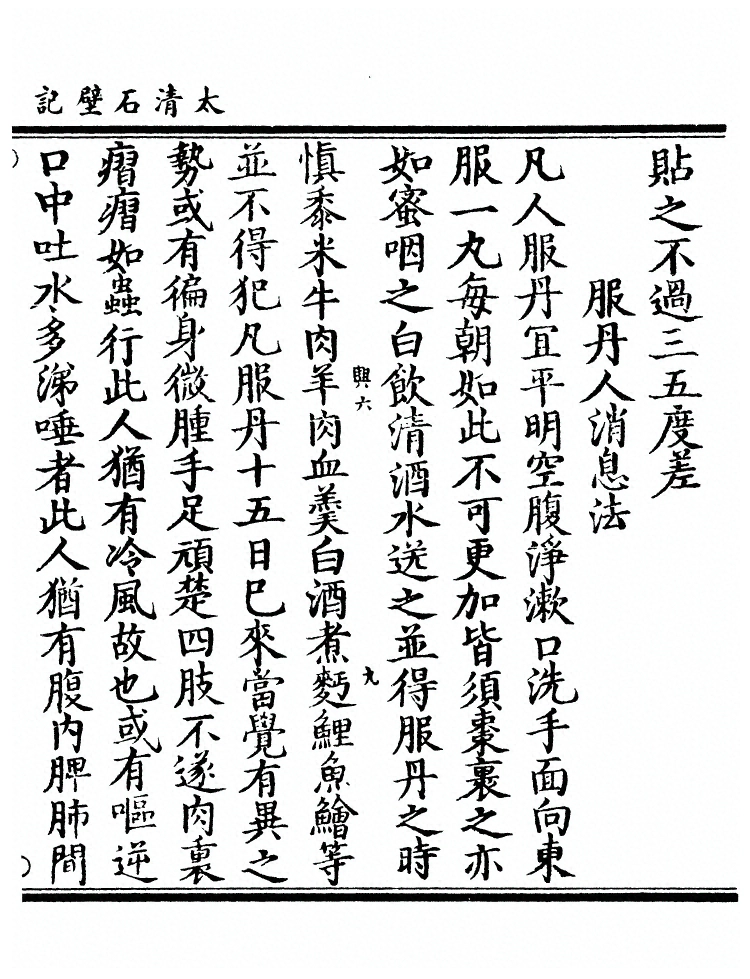 太清石壁記
貼之不過三五度差
服丹人消息法
凡人服丹冝平明空腹淨漱口洗手面向東
服一丸每朝如此不可更加皆須棗裹之亦
如蜜咽之白飲清酒水送之並得服丹之時
慎黍米牛肉羊肉血羹白酒煮麪鯉魚鱠等
與六
九
並不得犯凡服丹十五日巳來當覺有異之
勢或有徧身微腫手足頑楚四肢不遂肉裏
㿇㿇如蟲行此人猶有冷風故也或有嘔逆
口中吐水多涕唾者此人猶有腹内脾肺間